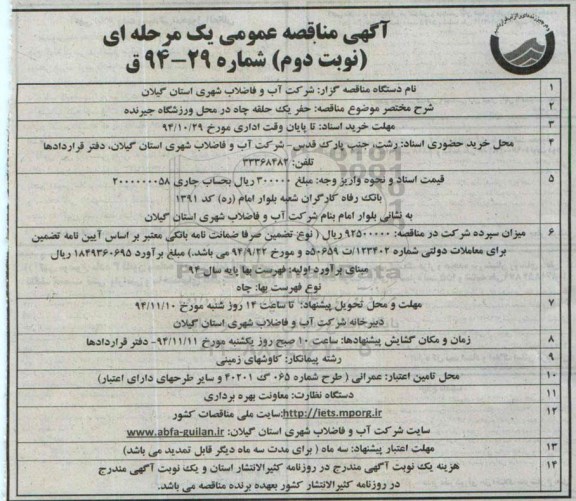 آگهی مناقصه عمومی یک مرحله ای
(نوبت دوم) شماره ۲۹-۹۴ ق
۱ نام دستگاه مناقصه گزار: شرکت آب و فاضلاب شهری استان گیلان
۲ شرح مختصر موضوع مناقصه: حفر یک حلقه چاه در محل ورزشگاه جیرنده
۳ مهلت خرید اسناد: تا پایان وقت اداری مورخ ۹۴/۱۰/۲۹
۴ محل خرید حضوری اسناد: رشت، جنب پارک قدس- شرکت آب و فاضلاب شهری استان گیلان، دفتر قراردادها
تلفن: ۳۳۳۶۸۴۸۲
۵ قیمت اسناد و نحوه واریز وجه: مبلغ ۳۰۰۰۰۰ ریال بحساب جاری ۲۰۰۰۰۰۰۰۵۸
بانک رفاه کارگران شعبه بلوار امام (ره) کد ۱۳۹۱
به نشانی بلوار امام بنام شرکت آب و فاضلاب شهری استان گیلان
۶ میزان سپرده شرکت در مناقصه: ۹۲۵۰۰۰۰۰ ریال ( نوع تضمین صرفا ضمانت نامه بانکی معتبر بر اساس آیین نامه تضمین
برای معاملات دولتی شماره ۱۲۳۴۰۲/ت ۵۰۶۵۹ه و مورخ ۹۴/۹/۲۲ می باشد.) مبلغ برآورد ۱۸۴۹۳۶۰۶۹۵ ریال
مبنای برآورد اولیه: فهرست بها پایه سال ۹۴
نوع فهرست بها: چاه
۷ مهلت و محل تحویل پیشنهاد: تا ساعت ۱۴ روز شنبه مورخ ۹۴/۱۱/۱۰
دبیرخانه شرکت آب و فاضلاب شهری استان گیلان
۸ زمان و مکان گشایش پیشنهادها: ساعت ۱۰ صبح روز یکشنبه مورخ ۹۴/۱۱/۱۱- دفتر قراردادها
۹ رشته پیمانکار: کاوشهای زمینی
۱۰ محل تامین اعتبار: عمرانی ( طرح شماره ۰۶۵ گ ۴۰۲۰۱ و سایر طرحهای دارای اعتبار)
۱۱ دستگاه نظارت: معاونت بهره برداری
۱۲ http://iets.mporg.ir:سایت ملی مناقصات کشور
سایت شرکت آب و فاضلاب شهری استان گیلان: www.abfa-guilan.ir
۱۳ مهلت اعتبار پیشنهاد: سه ماه ( برای مدت سه ماه دیگر قابل تمدید می باشد)
۱۴ هزینه یک نوبت آگهی مندرج در روزنامه کثیرالانتشار استان و یک نوبت آگهی مندرج
در روزنامه کثیرالانتشار کشور بعهده برنده مناقصه می باشد.